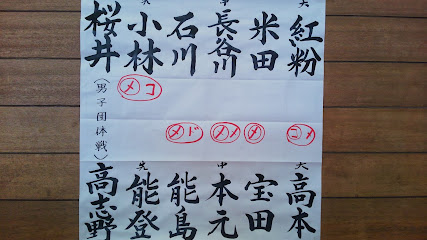 大 紅粉
米田
中 長谷川
石川
先 小林
桜井
(男子団体戦)
メコ
メド
メメ
メ
コメ
大 高本
宝田
中 本元
能島
先 能登
高志野